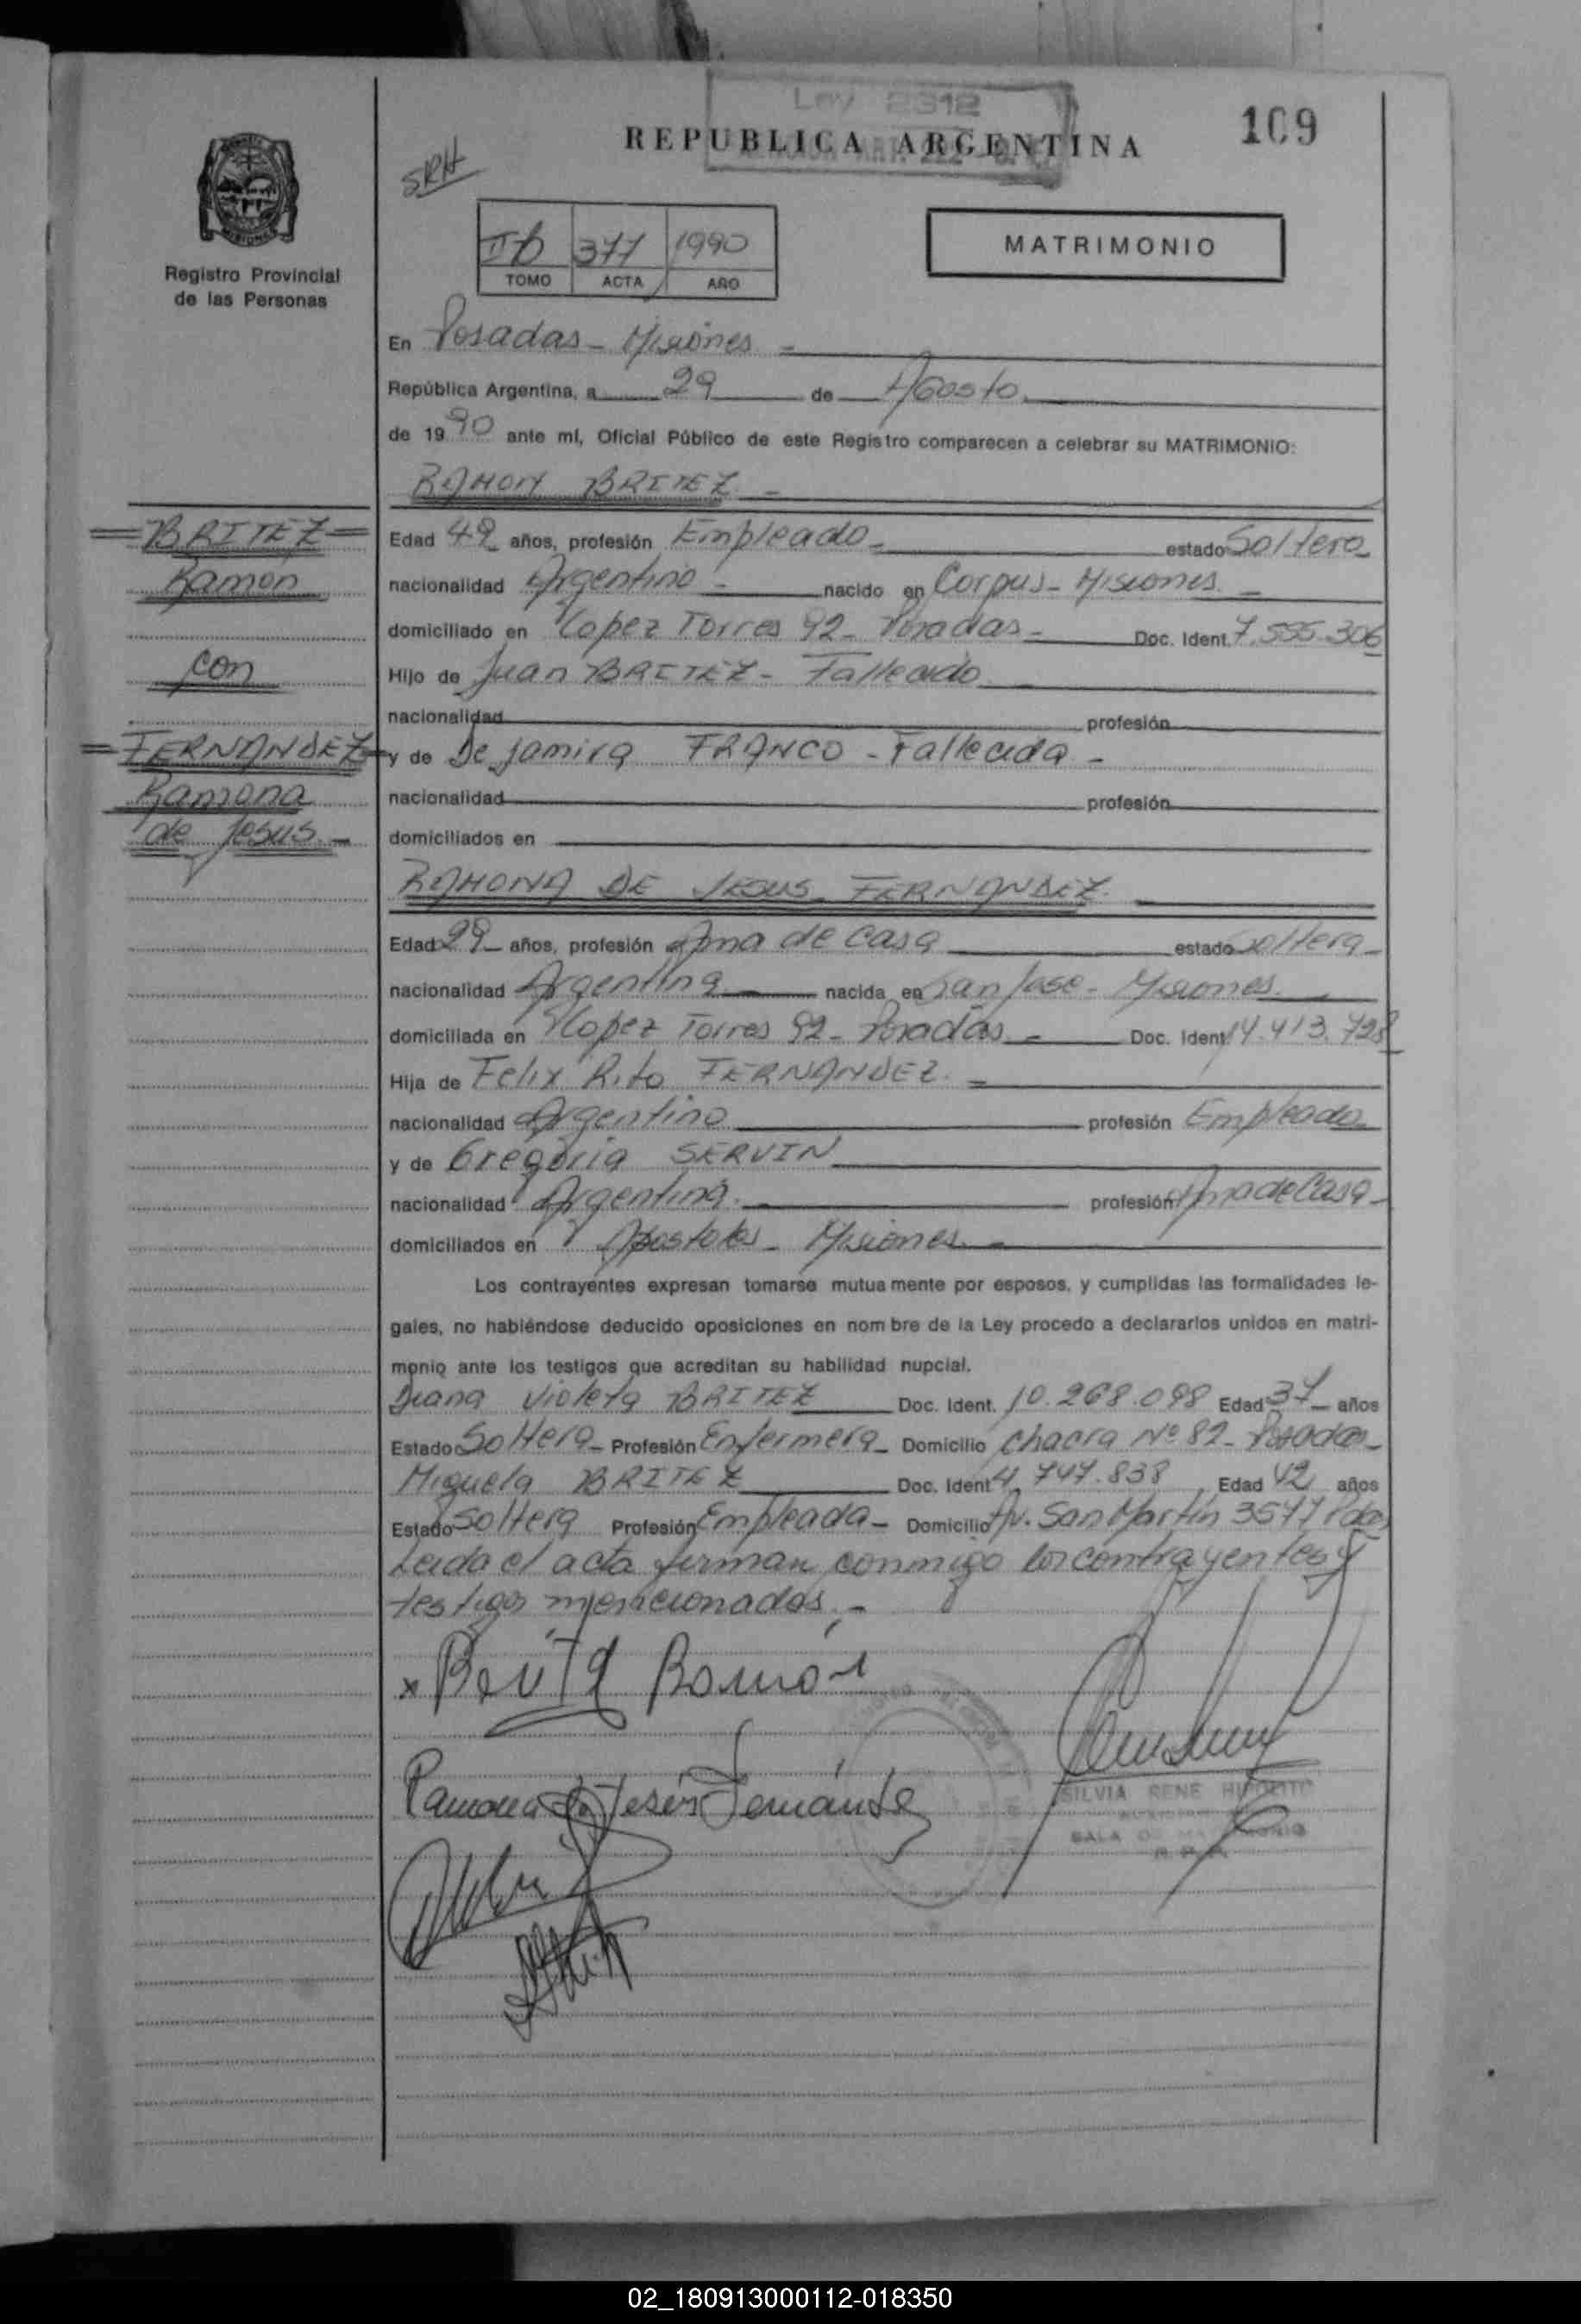 Ley 2312
REPUBLICA ARGENTINA
109
SRH
Registro Provincial
de las Personas
IIb 377 1990
TOMO ACTA AÑO
MATRIMONIO
En Posadas - Misiones -
República Argentina, a 29 de Agosto
de 1990 ante mí, Oficial Público de este Registro comparecen a celebrar su MATRIMONIO:
RAMON BRITEZ -
=BRITEZ=
Ramon
con
=FERNANDEZ=
Ramona
de Jesus -
Edad 49 años, profesión Empleado - estado Soltero
nacionalidad Argentino - nacido en Corpus - Misiones. -
domiciliado en Lopez Torres 92 - Posadas - Doc. Ident. 7.555.306
Hijo de Juan BRITEZ - Fallecido -
nacionalidad profesión
y de Dejamira FRANCO - Fallecida -
nacionalidad profesión
domiciliados en
RAMONA DE JESUS FERNANDEZ.
Edad 29 - años, profesión Ama de Casa estado Soltera -
nacionalidad Argentina nacida en San Jose - Misiones.
domiciliada en Lopez Torres 92 - Posadas - Doc. Ident 14.413.728
Hija de Felix Rito FERNANDEZ. =
nacionalidad Argentino profesión Empleado
y de Gregoria SERVIN
nacionalidad Argentina. profesión Ama de Casa -
domiciliados en Apostoles - Misiones. -
Los contrayentes expresan tomarse mutuamente por esposos, y cumplidas las formalidades le-
gales, no habiéndose deducido oposiciones en nombre de la Ley procedo a declararlos unidos en matri-
monio ante los testigos que acreditan su habilidad nupcial.
Diana Violeta BRITEZ Doc. Ident. 10.268.098 Edad 37 años
Estado Soltera - Profesión Enfermera - Domicilio chacra Nº 82 - Posadas -
Miguela BRITEZ Doc. Ident 4.747.838 Edad 42 años
Estado Soltera Profesión Empleada - Domicilio Av. San Martín 3577 Pdas
Leida el acta firman conmigo los contrayentes y
testigos mencionados. -
x Ramón
Ramona de Jesús Fernández
SILVIA RENE HIPOLITO
SALA DE MATRIMONIO
02_180913000112-018350